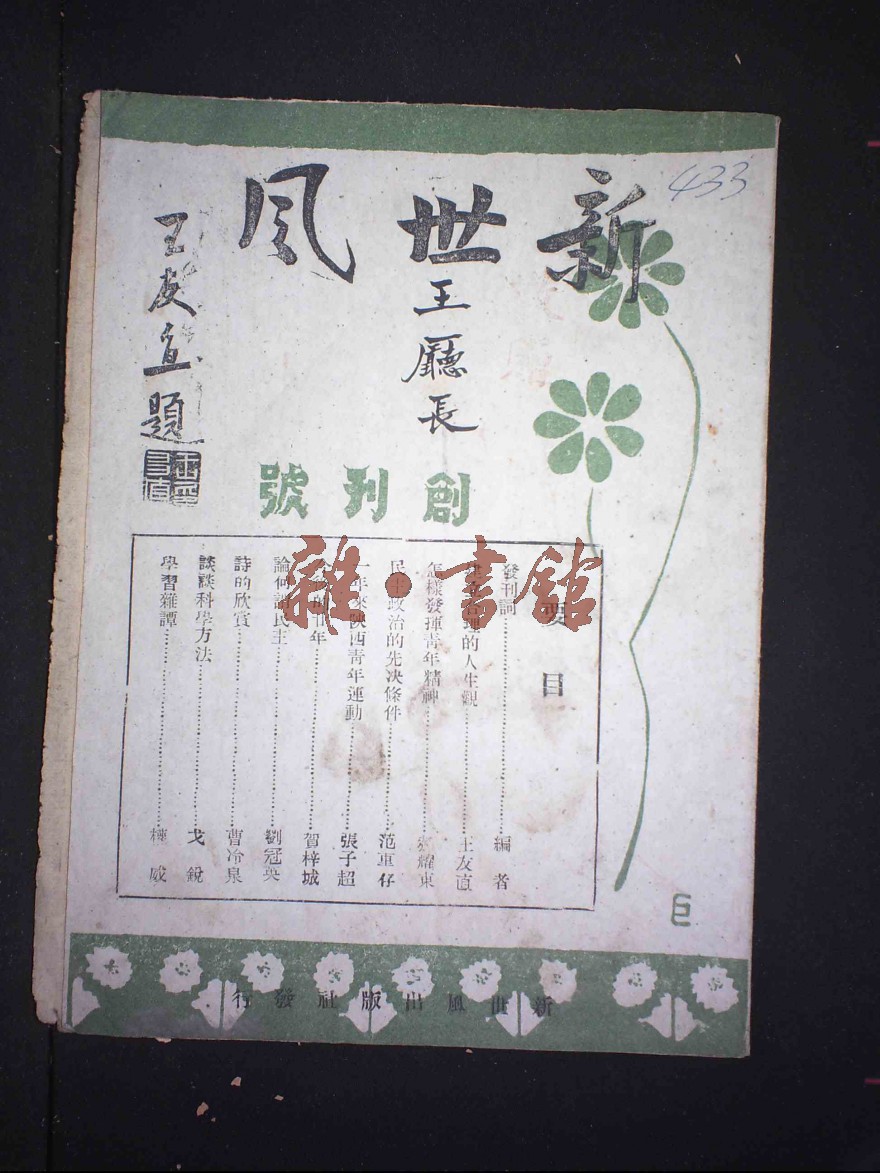 433
新世風
王廳長
王友直題
創刊號
雜·書館
要目
發刊詞……編者
的人生觀……王友直
怎樣發揮青年精神……耀東
民主政治的先决條件……范車仔
一年來陝西青年運動……張子超
年……賀梓城
論何謂民主……劉冠英
詩的欣賞……曹冷泉
談談科學方法……戈銳
學習雜譚……威
新世風出版社發行